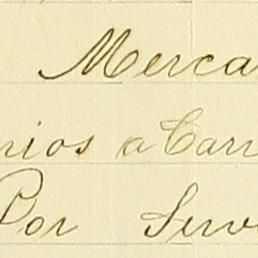 Merca
nios a Carr
Por Servi